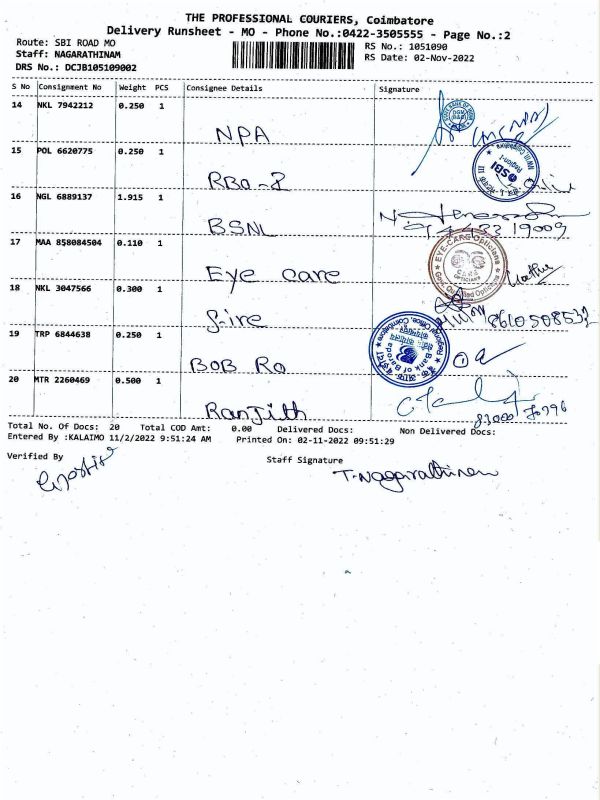 THE PROFESSIONAL COURIERS, Coimbatore
Delivery Runsheet - MO - Phone No.:0422-3505555 - Page No.:2
Route: SBI ROAD MO RS No.: 1051090
Staff: NAGARATHINAM RS Date: 02-Nov-2022
DRS No.: DCJB105109002
S No Consignment No Weight PCS Consignee Details Signature
14 NKL 7942212 0.250 1 NPA
15 POL 6620775 0.250 1 RBO-2 SBI Region-I
16 NGL 6889137 1.915 1 BSNL 19009
17 MAA 858084504 0.110 1 Eye care EYE-CARE Opticians
18 NKL 3047566 0.300 1 Fire
19 TRP 6844638 0.250 1 BOB RO Bank of Baroda
20 MTR 2260469 0.500 1 Ranjith
Total No. Of Docs: 20 Total COD Amt: 0.00 Delivered Docs: Non Delivered Docs:
Entered By :KALAIMO 11/2/2022 9:51:24 AM Printed On: 02-11-2022 09:51:29
Verified By Staff Signature
T. Nagarathinam